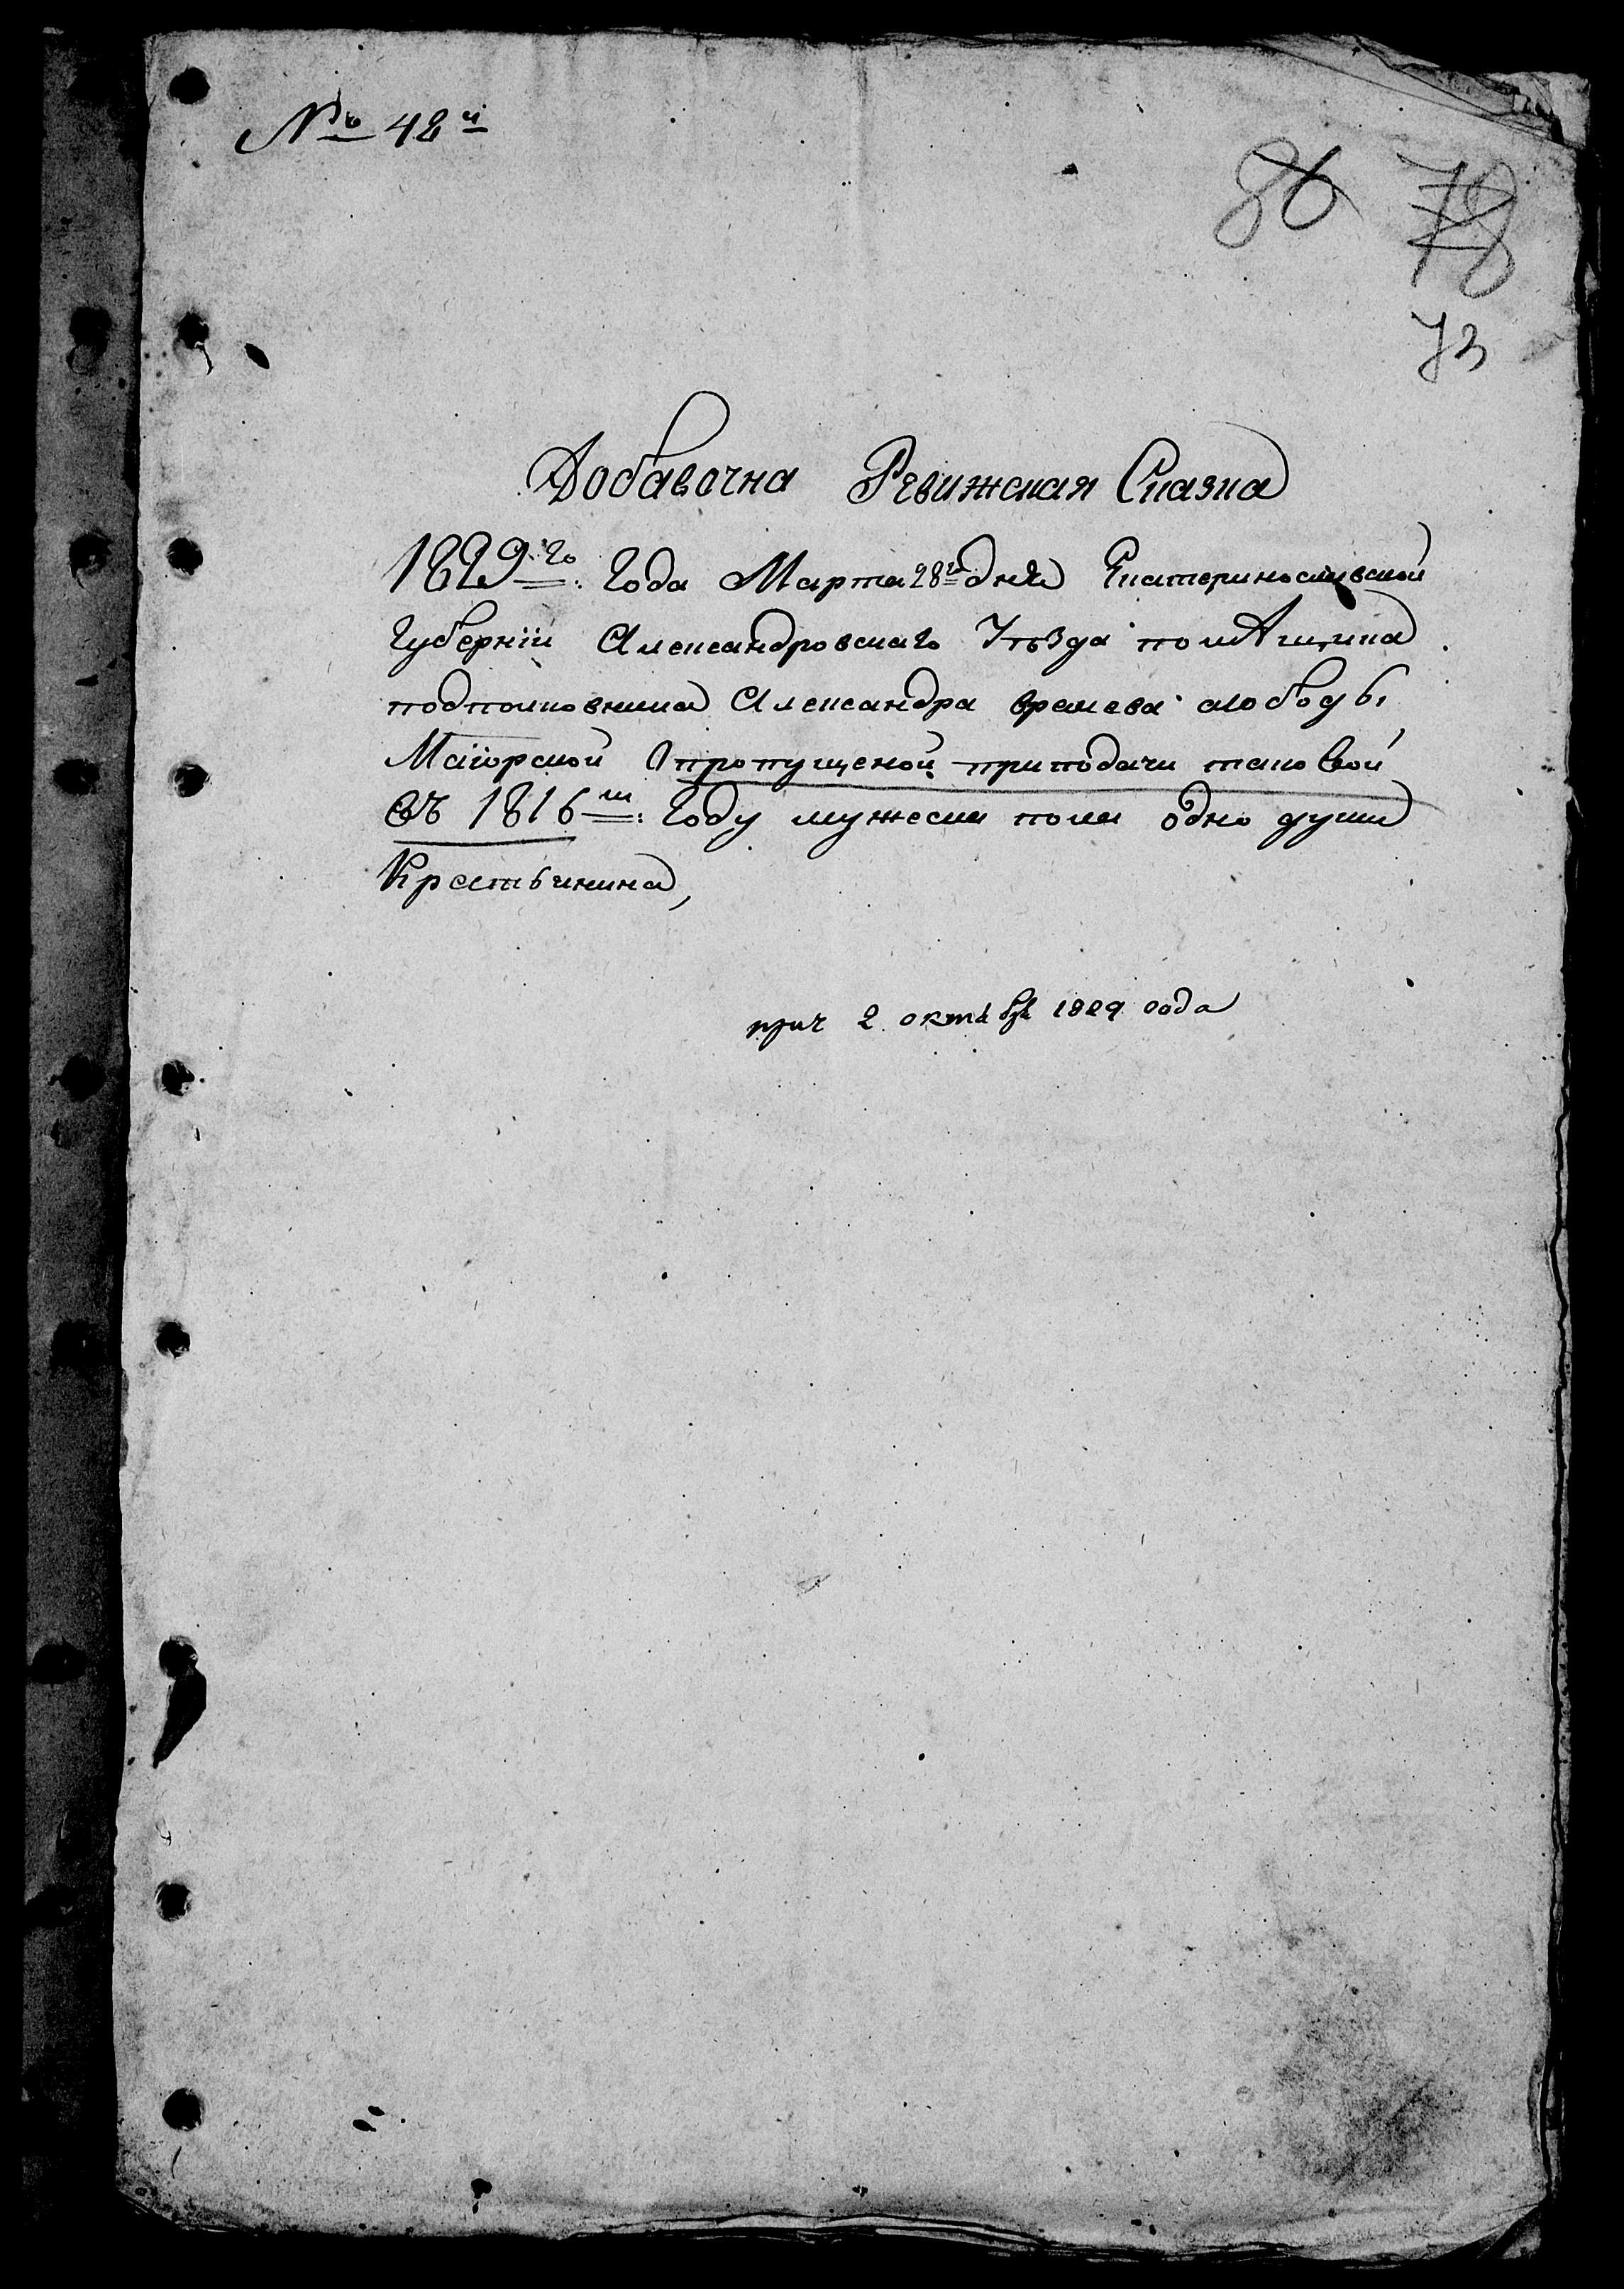 № 42й
86 78
73
Добавочна Ревижская Сказка
1829го: Года Марта 28го дня Екатеринославской
Губерніи Александровскаго Уѣзда помѣщика
подполковника Александра слободы
Маіорской пропущеной приподачи таковой
въ 1816м: Году мужеска пола одно души
Крестьянина,
2 октября 1829 года